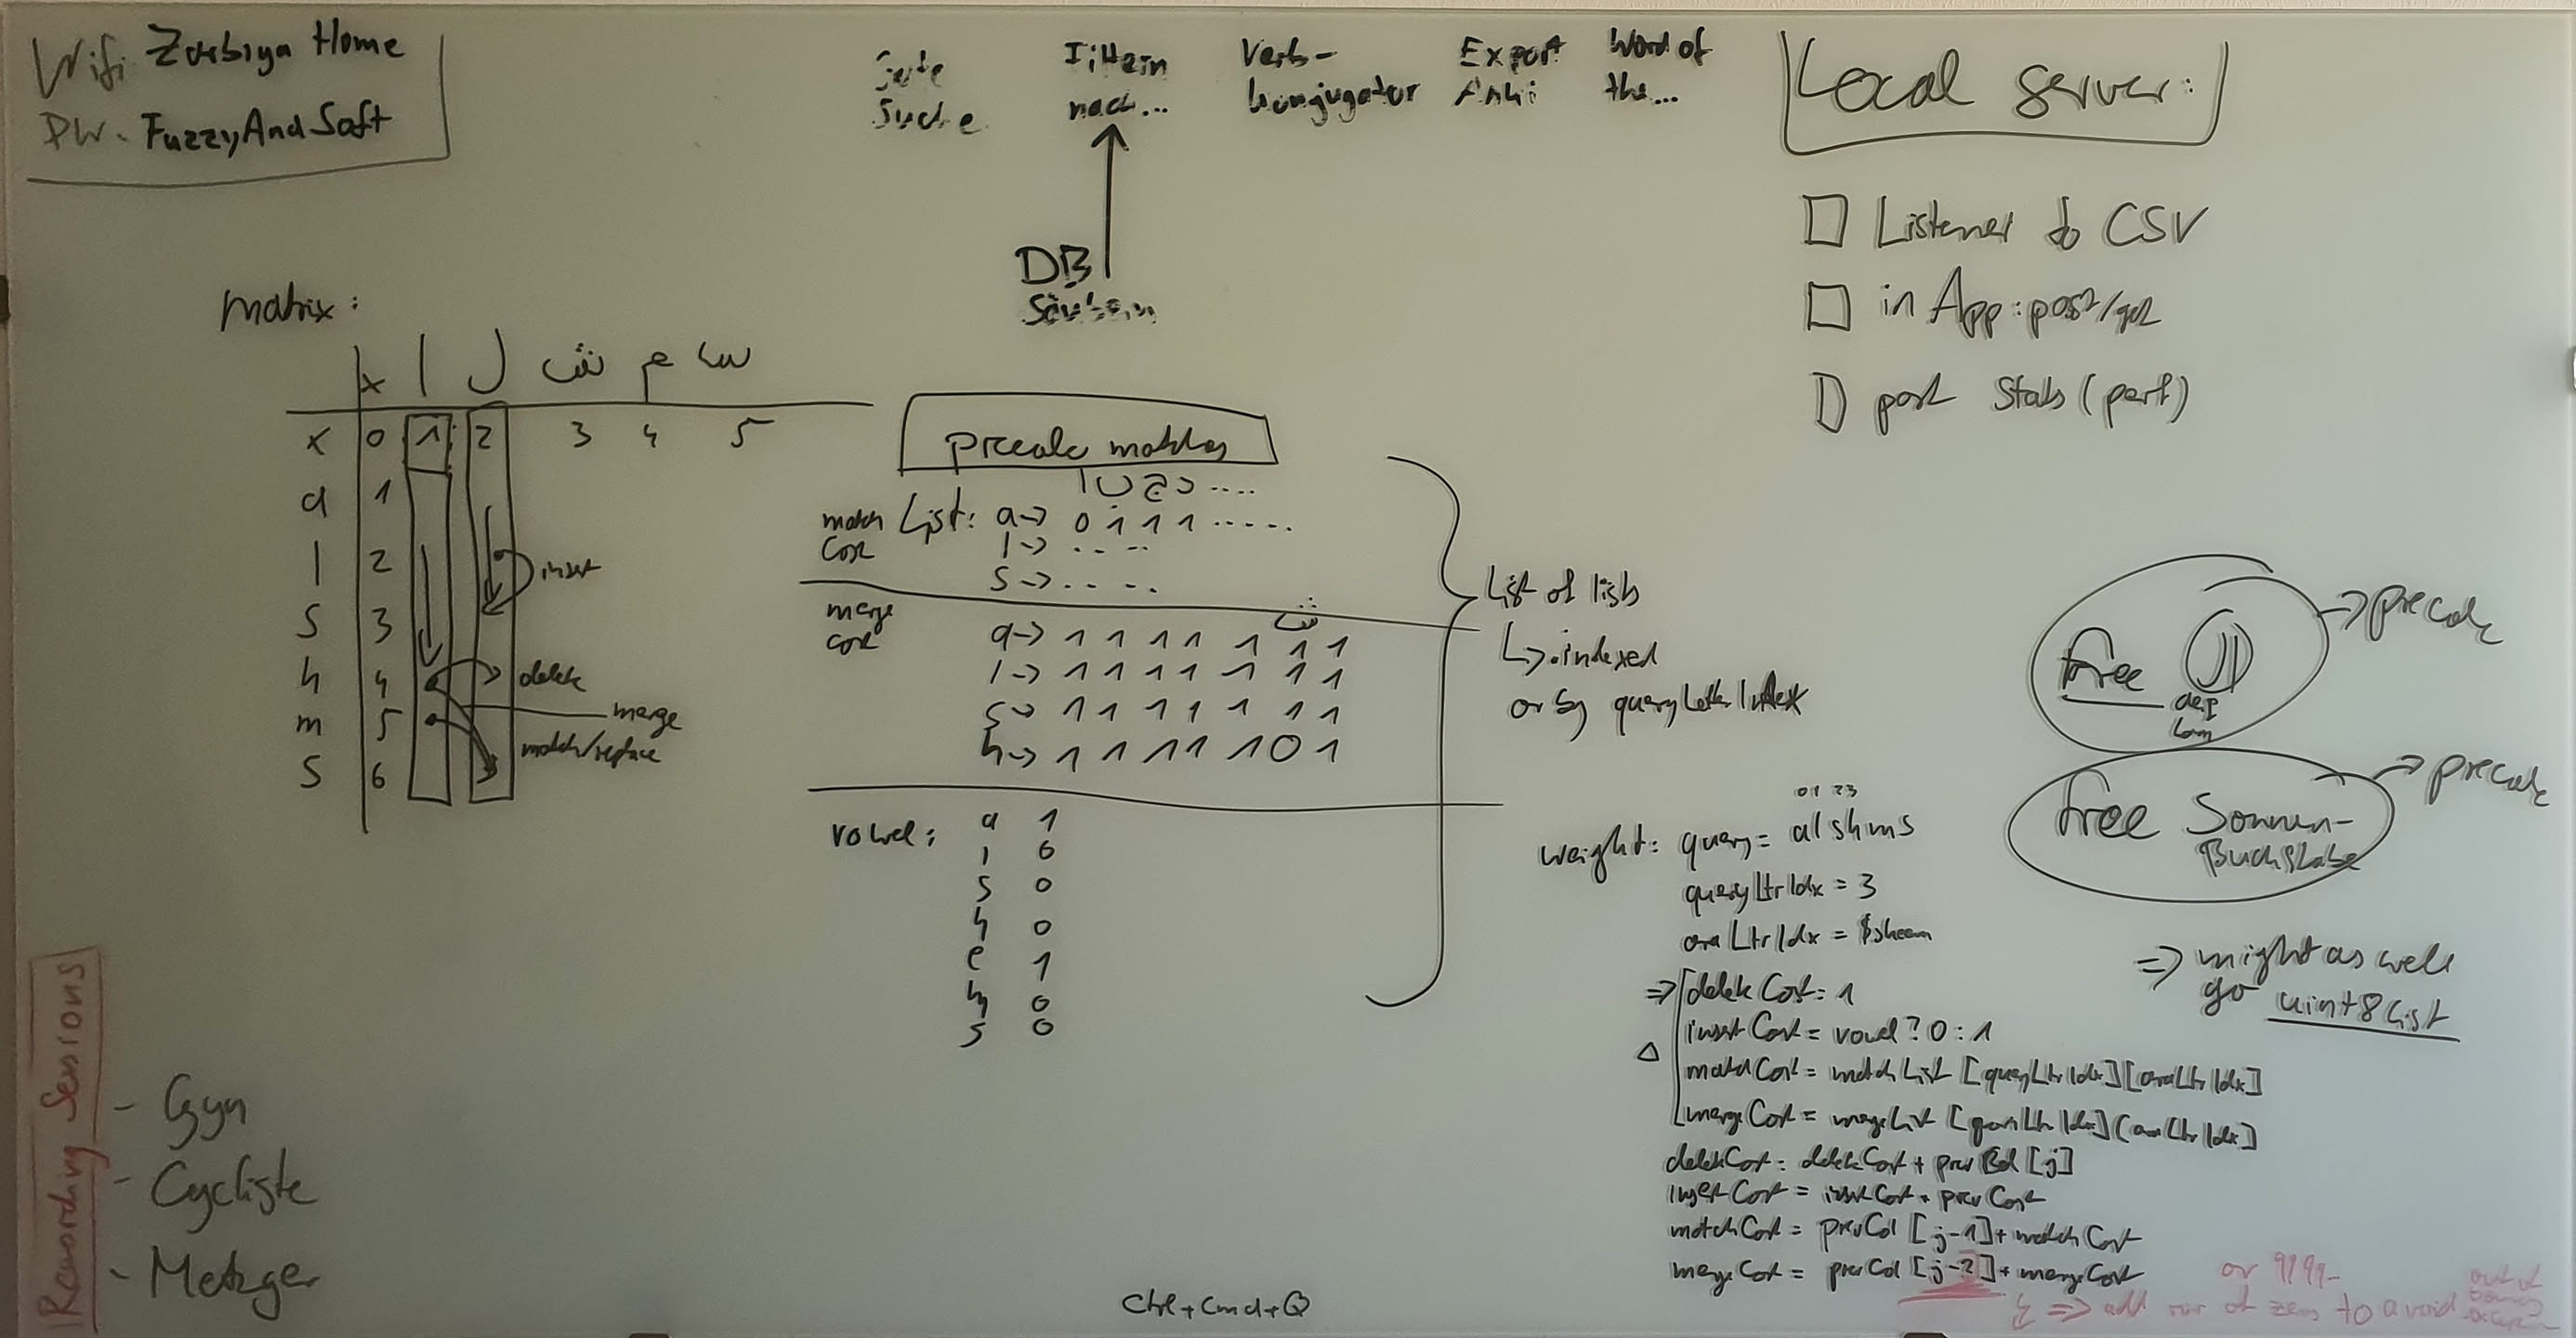 Wifi Zarbiya Home
PW. FuzzyAndSoft
Gute
Suche
Filtern
nach...
Verb-
konjugator
Export
Anki
Word of
the...
DB
Säubern
Local server:
Listener to CSV
in App: post/get
post Stats (perf)
matrix:
x ا ل ش م س
x 0 1 2 3 4 5
a 1
l 2
s 3
h 4
m 5
s 6
insert
delete
merge
match/replace
precalc matches
ا ب ج د ....
match List: a-> 0 1 1 1 .....
cost l-> ....
s-> ....
merge
cost
ش
a-> 1 1 1 1 1 1 1
l-> 1 1 1 1 1 1 1
s-> 1 1 1 1 1 1 1
h-> 1 1 1 1 1 0 1
vowel: a 1
l 0
s 0
h 0
e 1
m 0
s 0
List of lists
↳ indexed
or by queryLetterIndex
free ال
-> precalc
free Sonnen-
Buchstabe
-> precalc
=> might as well
go uint8List
0 1 2 3
weight: query = alshms
queryLtrIdx = 3
araLtrIdx = $sheen
=> deleteCost: 1
insertCost = vowel ? 0 : 1
Δ
matchCost = matchList [queryLtrIdx][araLtrIdx]
mergeCost = mergeList [queryLtrIdx][araLtrIdx]
deleteCost = deleteCost + prevCol [j]
insertCost = insertCost + prevCost
matchCost = prevCol [j-1] + matchCost
mergeCost = prevCol [j-2] + mergeCost
or 9999-
=> add row of zeros to avoid out of
bounds
Recording Sessions
- Gyn
- Cycliste
- Metzger
Ctrl+Cmd+Q